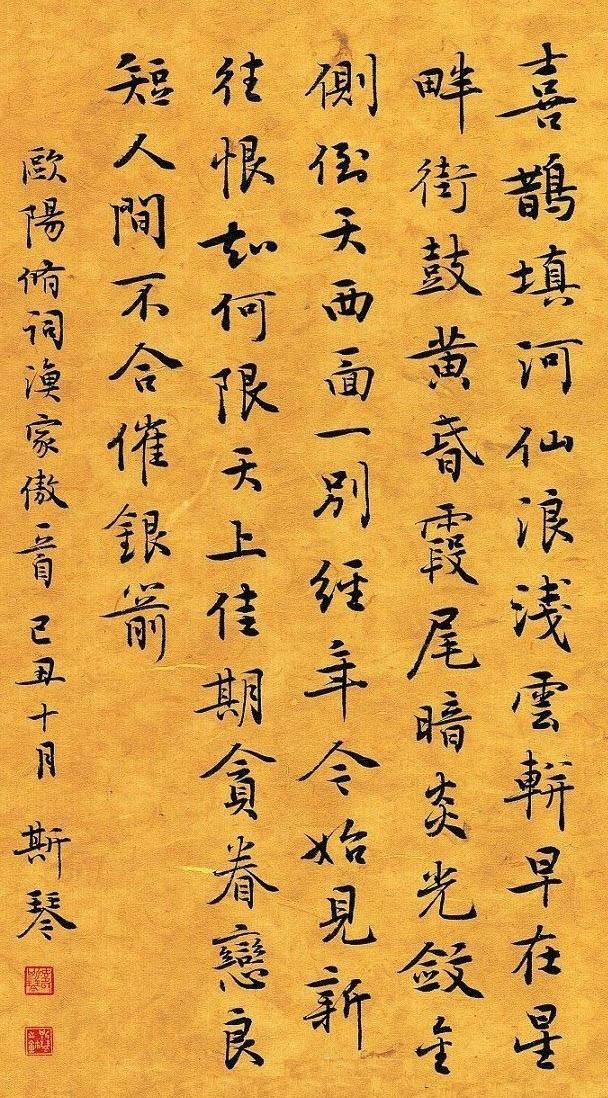 喜鵲填河仙浪淺雲軿早在星
畔街鼓黄昏霞尾暗炎光斂金
側倒天西面一別經年今始見新
往恨知何限天上佳期貪眷戀良
短人間不合催銀箭
歐陽脩詞漁家傲一首 己丑十月 斯琴